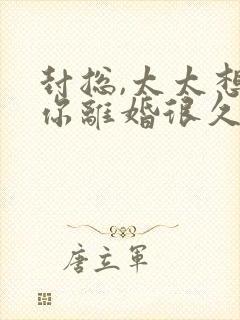 封总,太太想
你離婚很久
唐立軍